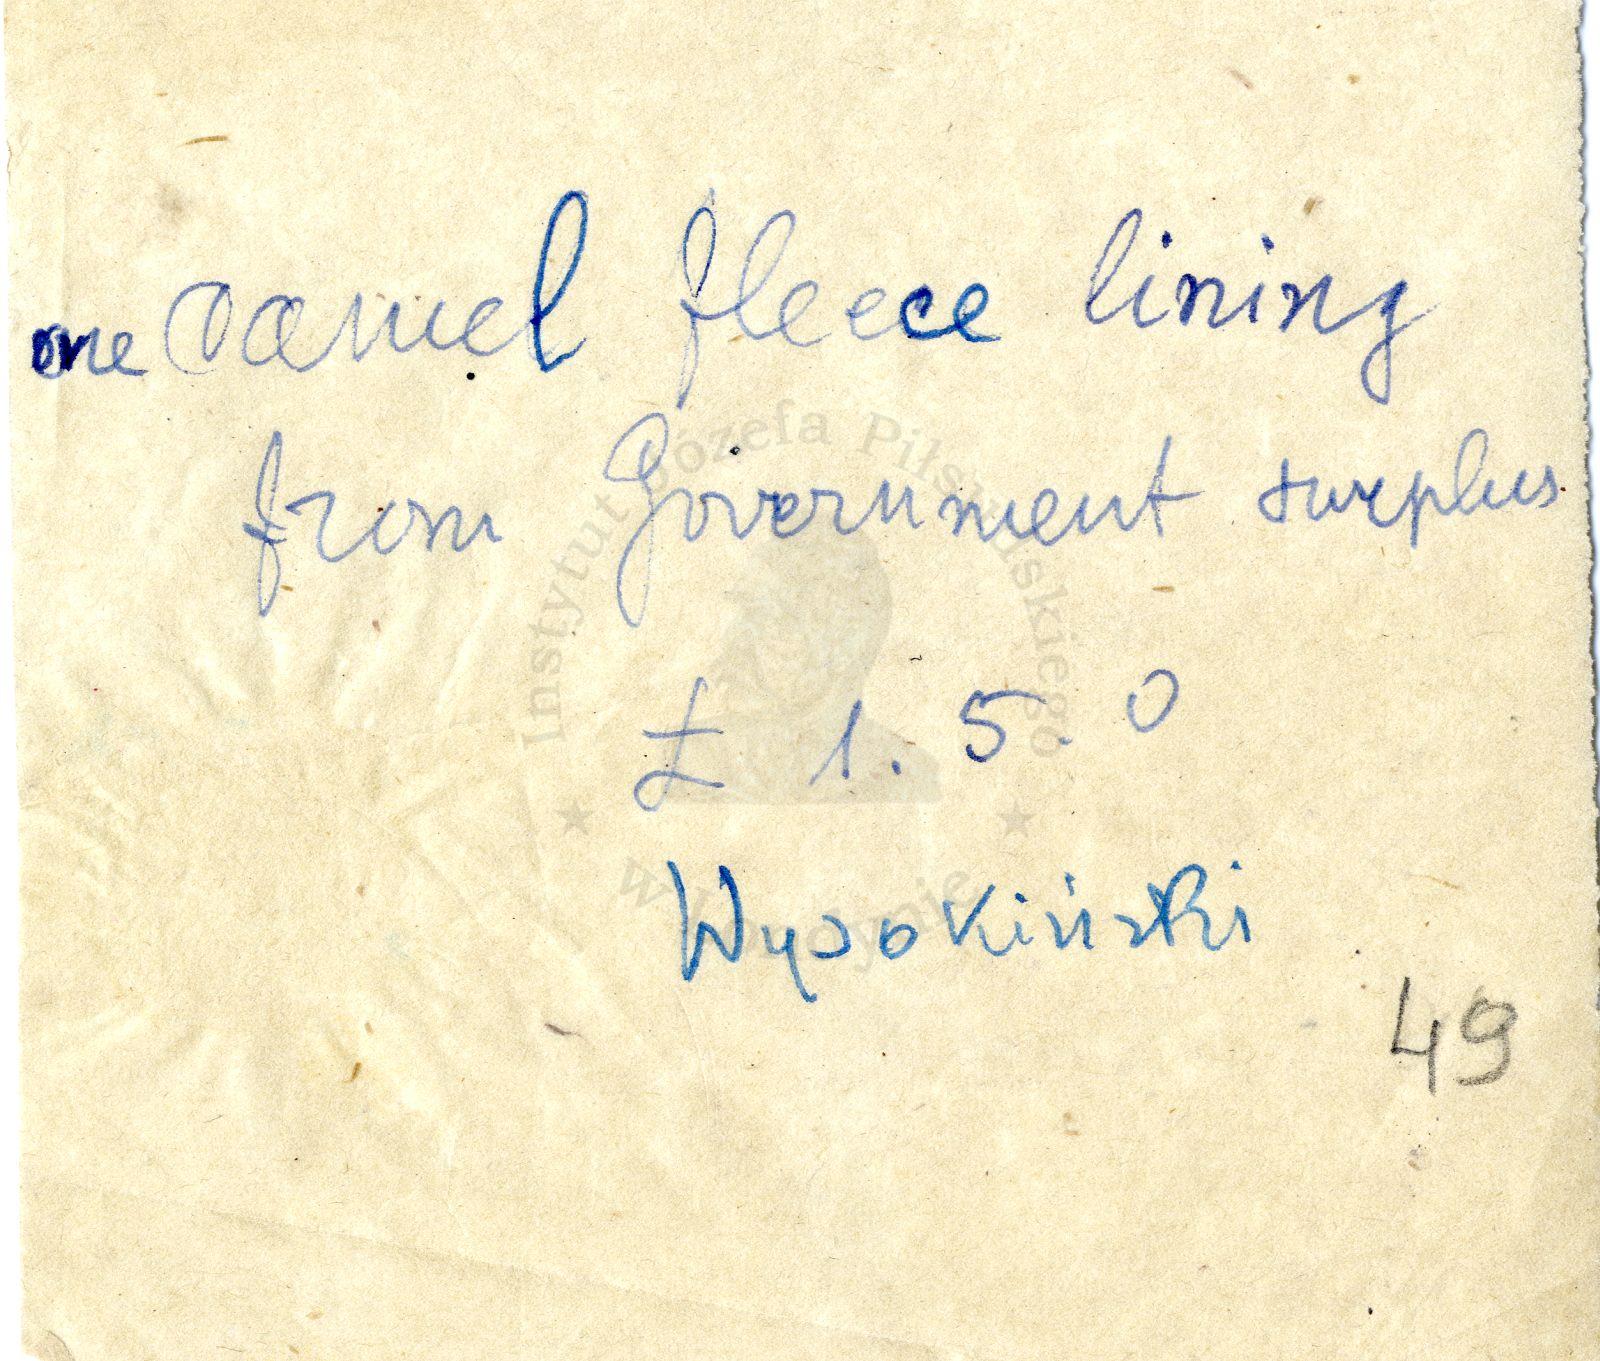 one camel fleece lining
from Government surplus
£ 1. 5. 0
Wysokiński
49
Instytut Józefa Piłsudskiego
w Londynie